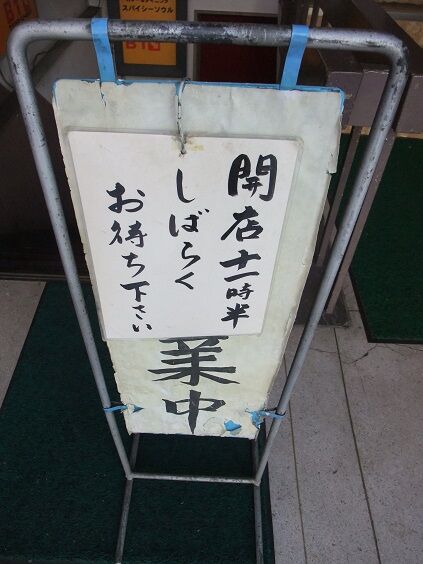 開店十一時半
しばらく
お待ち下さい
業中
スパイシーソウル